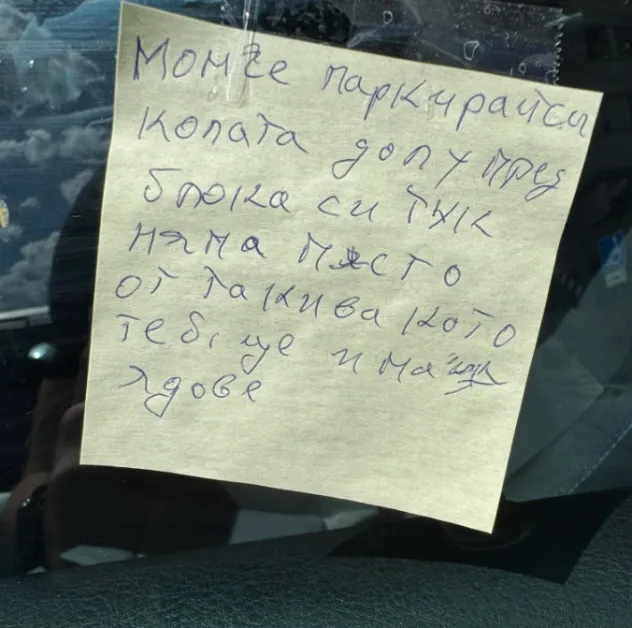 Момче паркирайси
колата долу пред
блока си тук
няма място
от такива като
теб, ще има
ядове